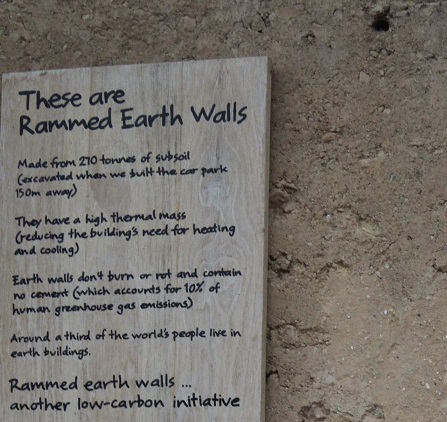 These are
Rammed Earth Walls
Made from 270 tonnes of subsoil
(excavated when we built the car park
150m away)
They have a high thermal mass
(reducing the building's need for heating
and cooling)
Earth walls don't burn or rot and contain
no cement (which accounts for 10% of
human greenhouse gas emissions)
Around a third of the world's people live in
earth buildings.
Rammed earth walls ...
another low-carbon initiative